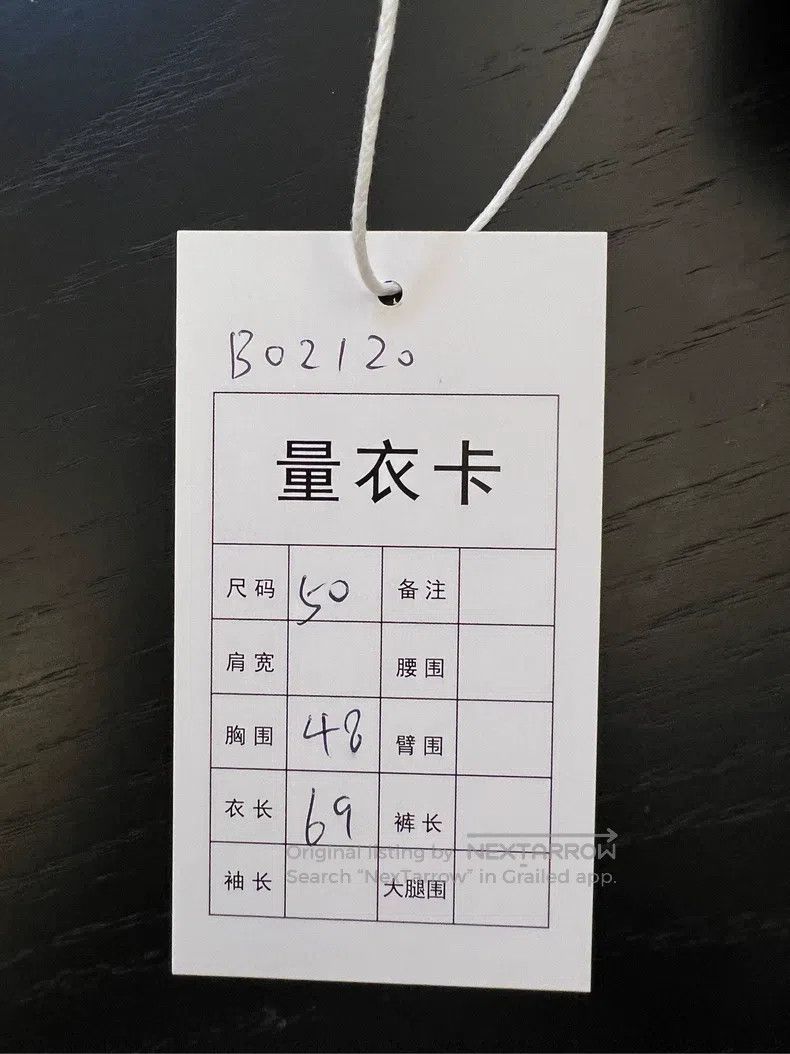 B02120
量衣卡
尺码 50 备注
肩宽 腰围
胸围 48 臂围
衣长 69 裤长
Original listing by NEXTARROW
Search “NexTarrow” in Grailed app.
袖长 大腿围